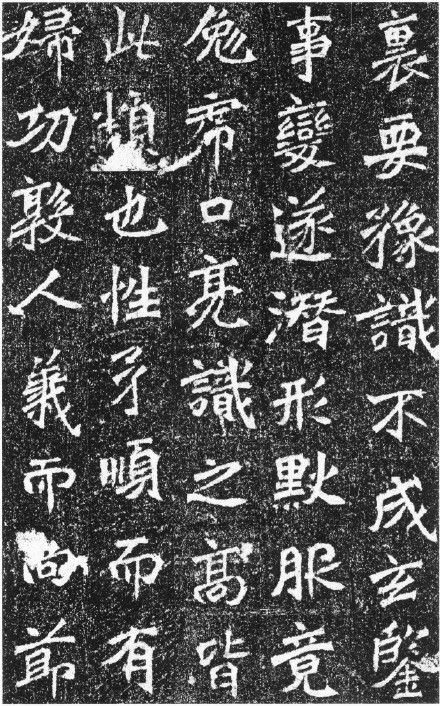 裏要豫識不成玄鑒
事變遂潛形默服竟
免虎口亮識之高皆
此類也性孝順而有
婦功敦人義而尚節